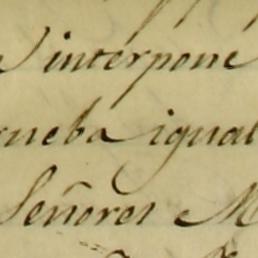 interpone
rueba igual
Señores M